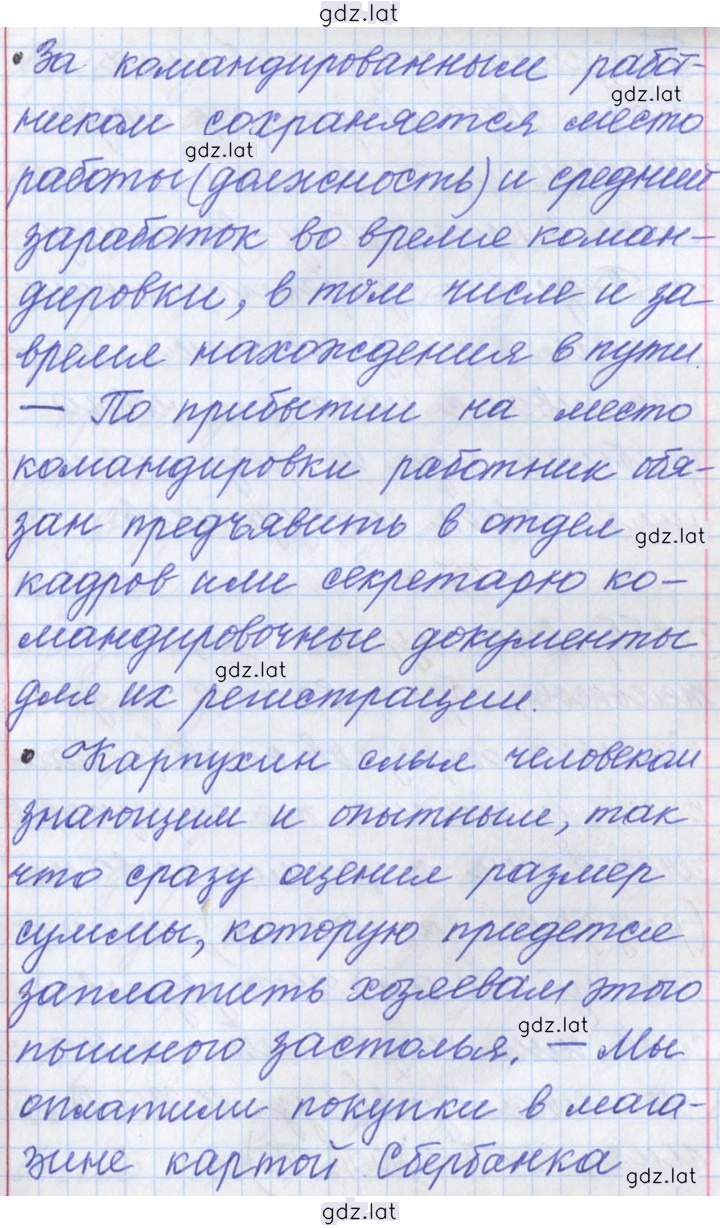 gdz.lat
• За командированным работ-
gdz.lat
ником сохраняется место
gdz.lat
работы (должность) и средний
заработок во время коман-
дировки, в том числе и за
время нахождения в пути.
— По прибытии на место
командировки работник обя-
зан предъявить в отдел
gdz.lat
кадров или секретарю ко-
мандировочные документы
gdz.lat
для их регистрации.
• Карпухин слыл человеком
знающим и опытным, так
что сразу оценил размер
суммы, которую придется
заплатить хозяевам этого
gdz.lat
пышного застолья. — Мы
оплатили покупки в мага-
зине картой Сбербанка
gdz.lat
gdz.lat